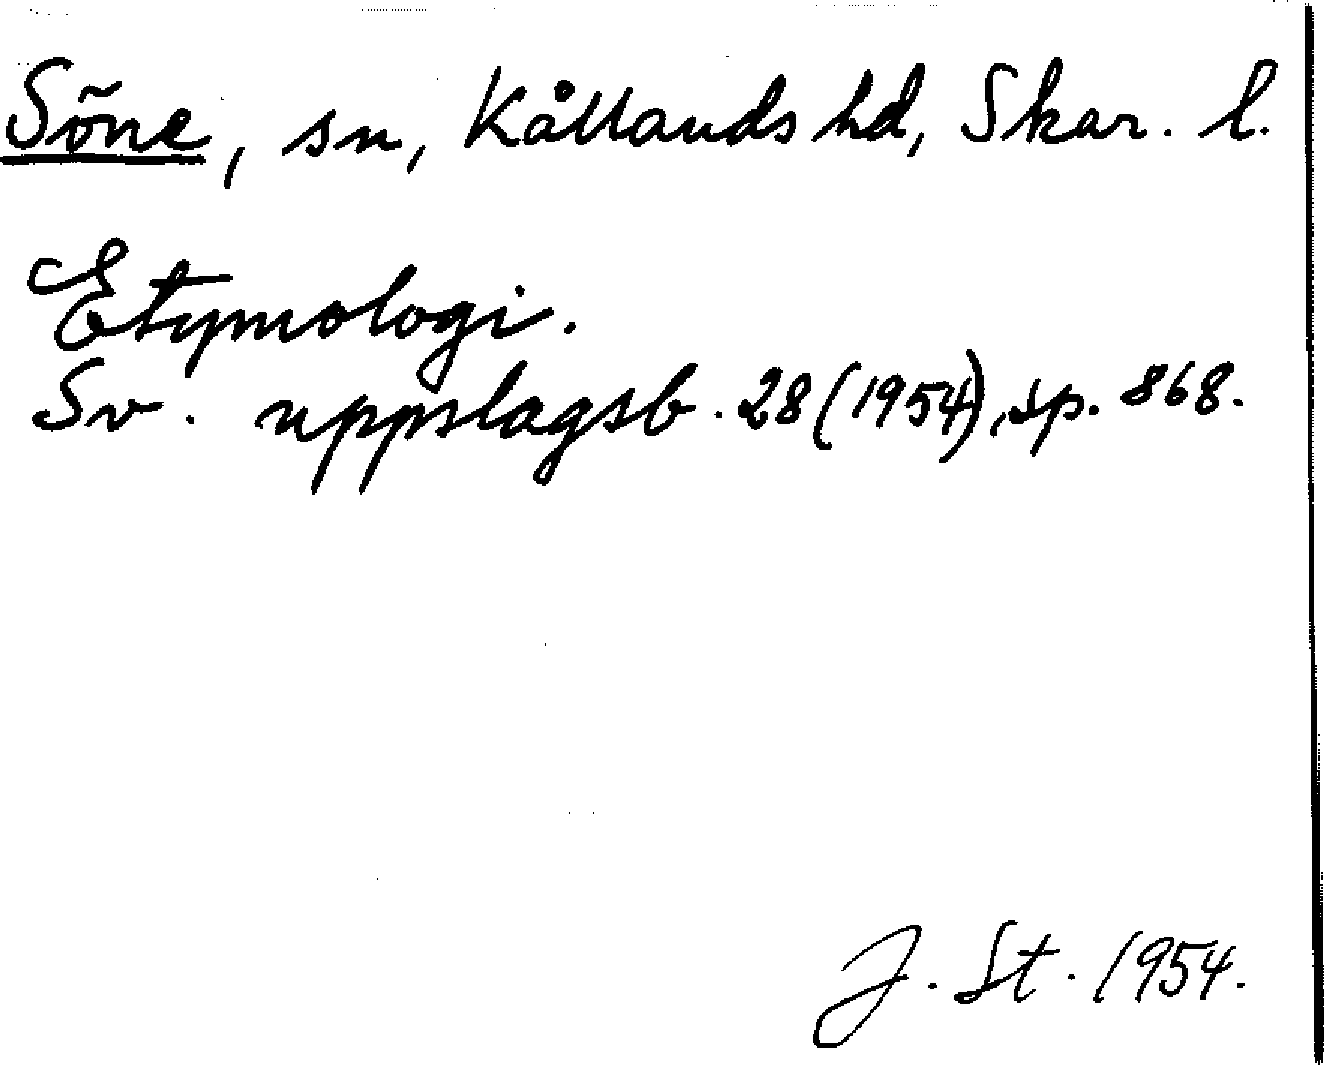 Söne, sn, Kållands hd, Skar. l.
Etymologi.
Sv. uppslagsb. 28 (1954), sp. 868.
J. St. 1954.